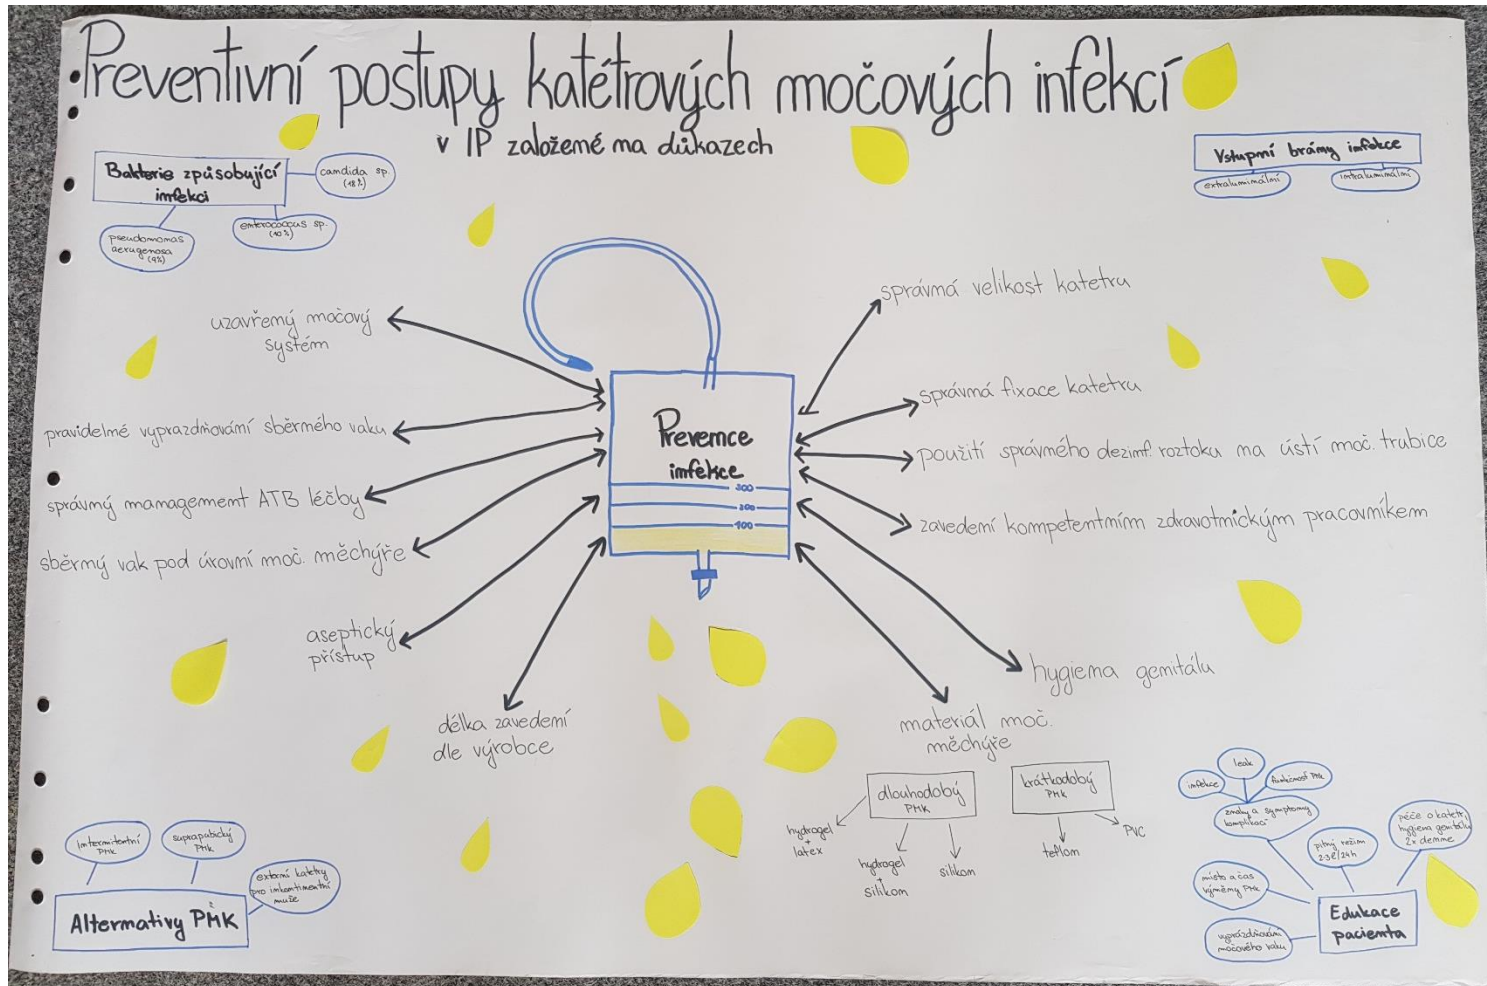 Preventivní postupy katétrových močových infekcí
v IP založemé ma důkazech
Bakterie způsobující
imfekci
candida sp.
(18%)
enterococcus sp.
(10%)
pseudomomas
aerugemosa
(9%)
Vstupmí brámy imfekce
extralumimálmí
imtralumimálmí
uzavřemý močový
systém
pravidelmé vyprazdňovámí sběrmého vaku
správmý mamagement ATB léčby
sběrmý vak pod úrovmí moč. měchýře
aseptický
přístup
délka zavedemí
dle výrobce
Prevemce
imfekce
300
200
100
správmá velikost katetru
správmá fixace katetru
použití správmého dezimf. roztoku ma ústí moč. trubice
zavedemí kompetemtmím zdravotmickým pracovmíkem
hygiema gemitálu
materiál moč.
měchýře
dlouhodobý
PMK
hydrogel
+
latex
hydrogel
+
silikom
silikom
krátkodobý
PMK
teflom
PVC
Imtermitemtmí
PMK
suprapubický
PMK
extermí katetry
pro imkomtimemtmí
muže
Altermativy PMK
imfekce
leak
fumkčmost PMK
zmaky a symptomy
komplikací
pitmý režim
2-3l/24h
péče o katetr,
hygiema gemitálu
2x demmě
místo a čas
výměmy PMK
vyprázdňovámí
močového vaku
Edukace
pacienta